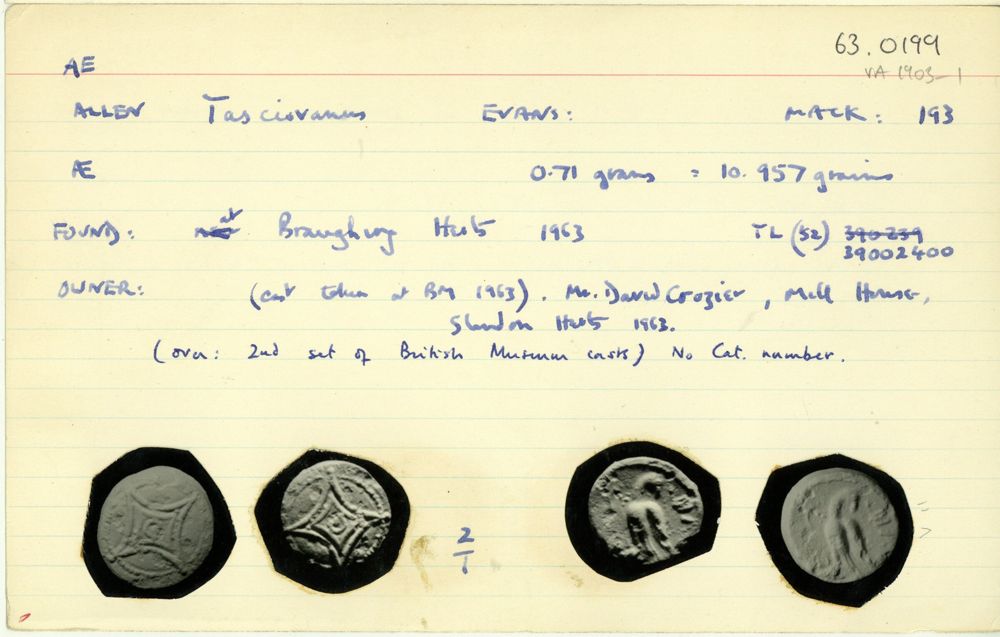 63.0199
VA 1903-1
AE
ALLEN Tasciovanus EVANS: MACK: 193
Æ 0.71 grams = 10.957 grains
FOUND: at Braughing Herts 1963 TL (52) 390239
39002400
OWNER: (cast taken at BM 1963). Mr. David Crozier, Mell House,
Standon Herts 1963.
(over: 2nd set of British Museum casts) No Cat. number.
2
1